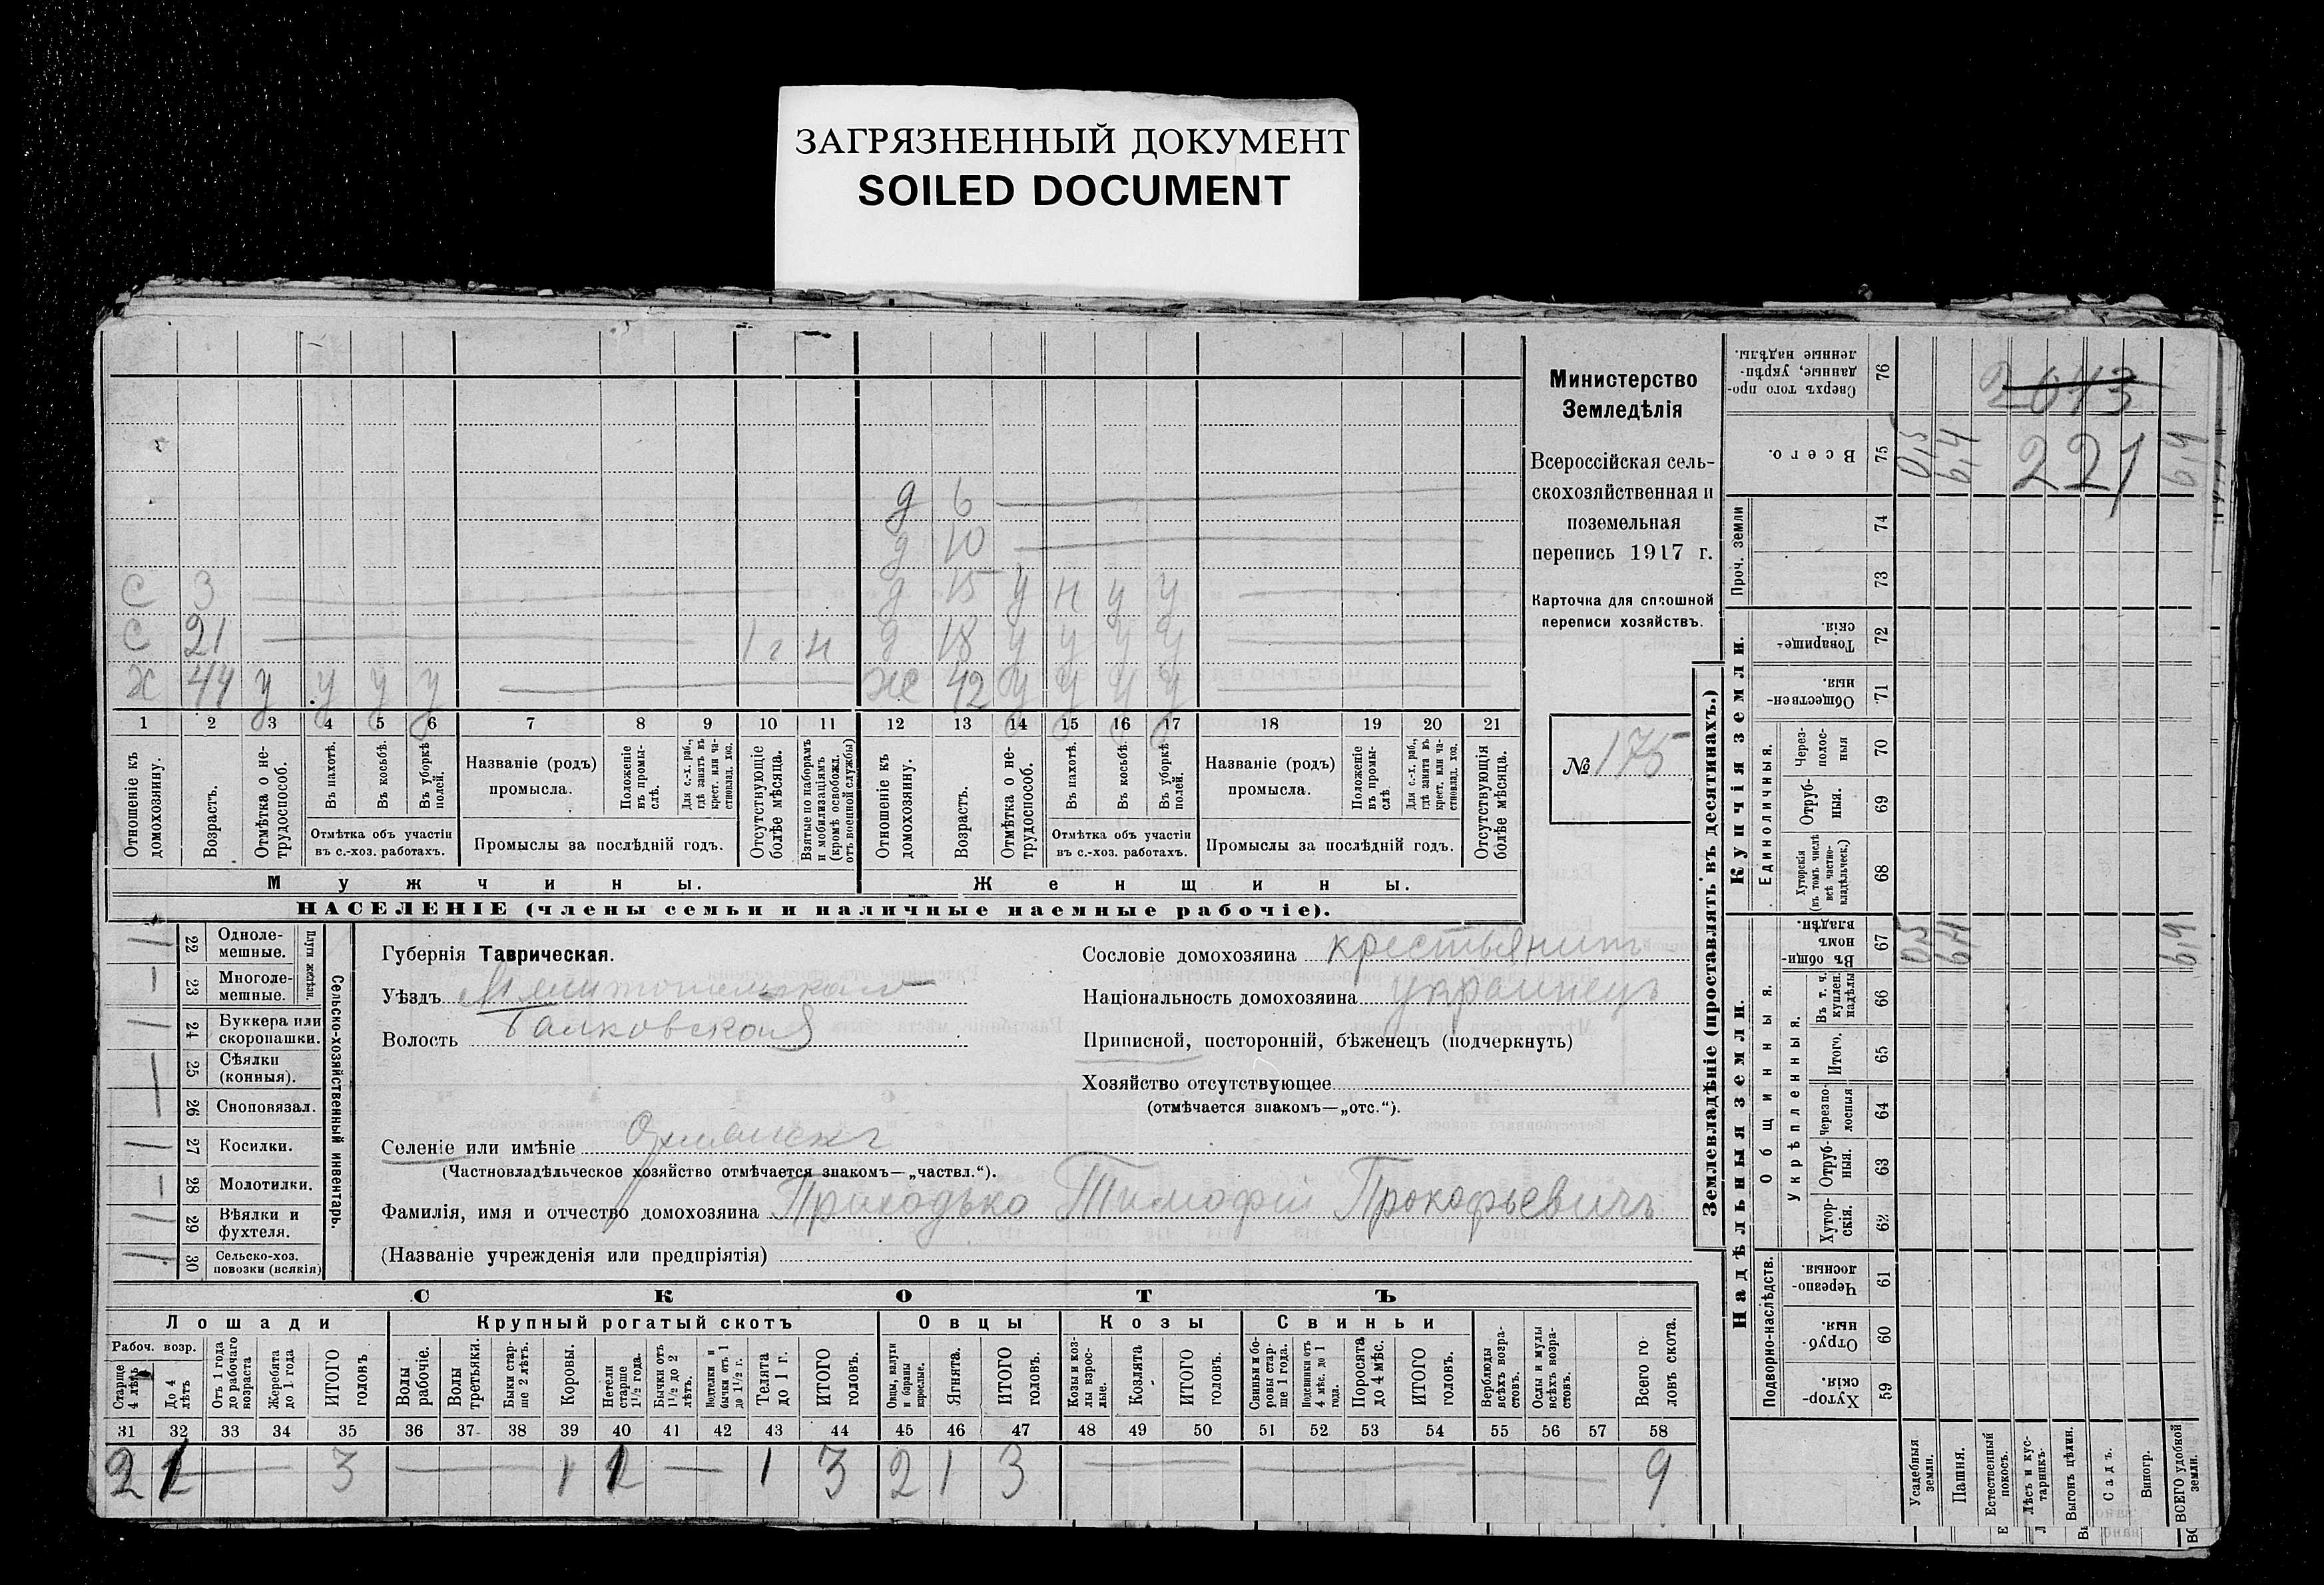 ЗАГРЯЗНЕННЫЙ ДОКУМЕНТ
SOILED DOCUMENT
д 6
д 10
С 3 д 15 у н у у
С 21 1 г н д 18 у у у у
Х 44 у у у у Же 42 у у у у
1 2 3 4 5 6 7 8 9 10 11 12 13 14 15 16 17 18 19 20 21
Отношеніе къ домохозяину.
Возрастъ.
Отмѣтка о не-трудоспособ.
Въ пахотѣ.
Въ косьбѣ.
Въ уборкѣ полей.
Отмѣтка объ участіи
въ с.-хоз. работахъ.
Названіе (родъ)
промысла.
Положеніе въ промы-слѣ.
Для с.-х. раб., гдѣ занятъ въ крест. или ча-стновлад. хоз.
Промыслы за послѣдній годъ.
Отсутствующіе болѣе мѣсяца.
Взятые по наборамъ и мобилизаціямъ (кромѣ освобожд. отъ военной службы)
Отношеніе къ домохозяину.
Возрастъ.
Отмѣтка о не-трудоспособ.
Въ пахотѣ.
Въ косьбѣ.
Въ уборкѣ полей.
Отмѣтка объ участіи
въ с.-хоз. работахъ.
Названіе (родъ)
промысла.
Положеніе въ промы-слѣ
Для с.-х. раб., гдѣ занята въ крест. или ча-стновлад. хоз.
Промыслы за послѣдній годъ.
Отсутствующія болѣе мѣсяца.
Мужчины.
Женщины.
НАСЕЛЕНІЕ (члены семьи и наличные наемные рабочіе).
Министерство
Земледѣлія
Всероссійская сель-
скохозяйственная и
поземельная
перепись 1917 г.
Карточка для сплошной
переписи хозяйствъ.
№ 175
22 Одноле-мешные.
23 Многоле-мешные.
Плуги желѣзн.
24 Буккера или скоропашки.
25 Сѣялки (конныя).
26 Сноповязал.
27 Косилки.
28 Молотилки.
29 Вѣялки и фухтеля.
30 Сельско-хоз. повозки (всякія)
Сельско-хозяйственный инвентарь.
Губернія Таврическая.
Уѣздъ Мелитопольскій
Волость
Селеніе или имѣніе
(Частновладѣльческое хозяйство отмѣчается знакомъ—„частвл.“).
Фамилія, имя и отчество домохозяина Приходько Тимофій Прокофьевичъ
(Названіе учрежденія или предпріятія)
Сословіе домохозяина крестьянинъ
Національность домохозяина украинецъ
Приписной, посторонній, бѣженецъ (подчеркнуть)
Хозяйство отсутствующее
(отмѣчается знакомъ—„отс.“).
СКОТЪ
Лошади
Крупный рогатый скотъ
Овцы
Козы
Свиньи
Рабоч. возр.
Старше 4 лѣтъ
До 4 лѣтъ
Отъ 1 года до рабочаго возраста
Жеребята до 1 года
ИТОГО головъ
Волы рабочіе.
Волы третьяки.
Быки стар-ше 2 лѣтъ.
Коровы.
Нетели старше 1½ года.
Бычки отъ 1½ до 2 лѣтъ.
Подтелки и бычки отъ 1 до 1½ г.
Телята до 1 г.
ИТОГО головъ.
Овцы, валухи и бараны взрослые.
Ягнята.
ИТОГО головъ.
Козы и коз-лы взрос-лые.
Козлята
ИТОГО головъ.
Свиньи и бо-ровы стар-ше 1 года.
Подсвинки отъ 4 мѣс. до 1 года.
Поросята до 4 мѣс.
ИТОГО головъ.
Верблюды всѣхъ возра-стовъ.
Ослы и мулы всѣхъ возра-стовъ.
Всего го-ловъ скота.
31 32 33 34 35 36 37 38 39 40 41 42 43 44 45 46 47 48 49 50 51 52 53 54 55 56 57 58
2 1 — 3 — 1 1 — 1 3 2 1 3 — — — 9
Землевладѣніе (проставлять въ десятинахъ.)
Надѣльныя земли.
Купчія земли.
Подворно-наслѣдств.
Общинныя.
Укрѣпленныя.
Единоличныя.
Проч. земли
Хутор-скія. 59
Отруб-ныя. 60
Черезпо-лосныя. 61
Хутор-скія. 62
Отруб-ныя. 63
Черезпо-лосныя 64
Итого. 65
Въ т. ч. куплен. надѣлы 66
Въ общин-номъ владѣн. 67
Хуторскія (въ томъ числѣ всѣ частно-владѣльческ.) 68
Отруб-ныя. 69
Через-полос-ныя 70
Обществен-ныя. 71
Товарище-скія. 72
73
74
Всего. 75
Сверхъ того про-данные, укрѣп-ленные надѣлы. 76
Усадебныя земли.
Пашня.
Естественный покосъ.
Лѣсъ и кус-тарникъ
Выгонъ цѣлин.
Садъ.
Виногр.
ВСЕГО удобной земли.
2043
221
0,5
6,4
6,9
0,5
6,4
6,9